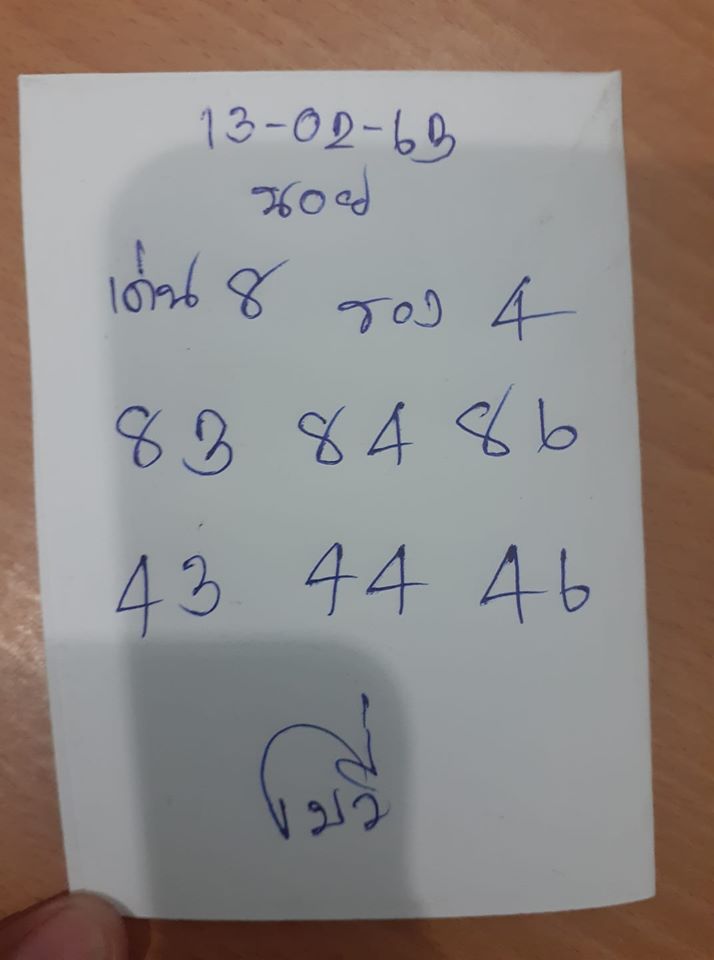 13-02-63
นอย
เด่น 8 รอง 4
83 84 86
43 44 46
โบวี่